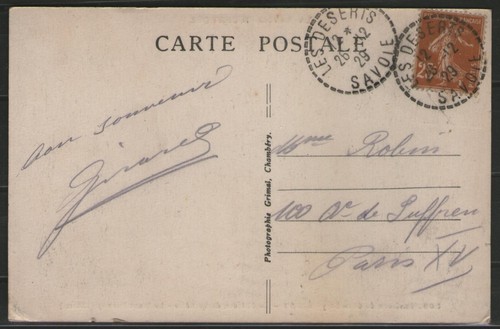 CARTE POSTALE
LES DESERTS
12 *
26 -12
29
SAVOIE
LES DESERTS
12
26 -12
29
SAVOIE
25
bon souvenir
Girard
Photographie Grimal, Chambéry.
Mme Robin
100 Av de Suffren
Paris XV